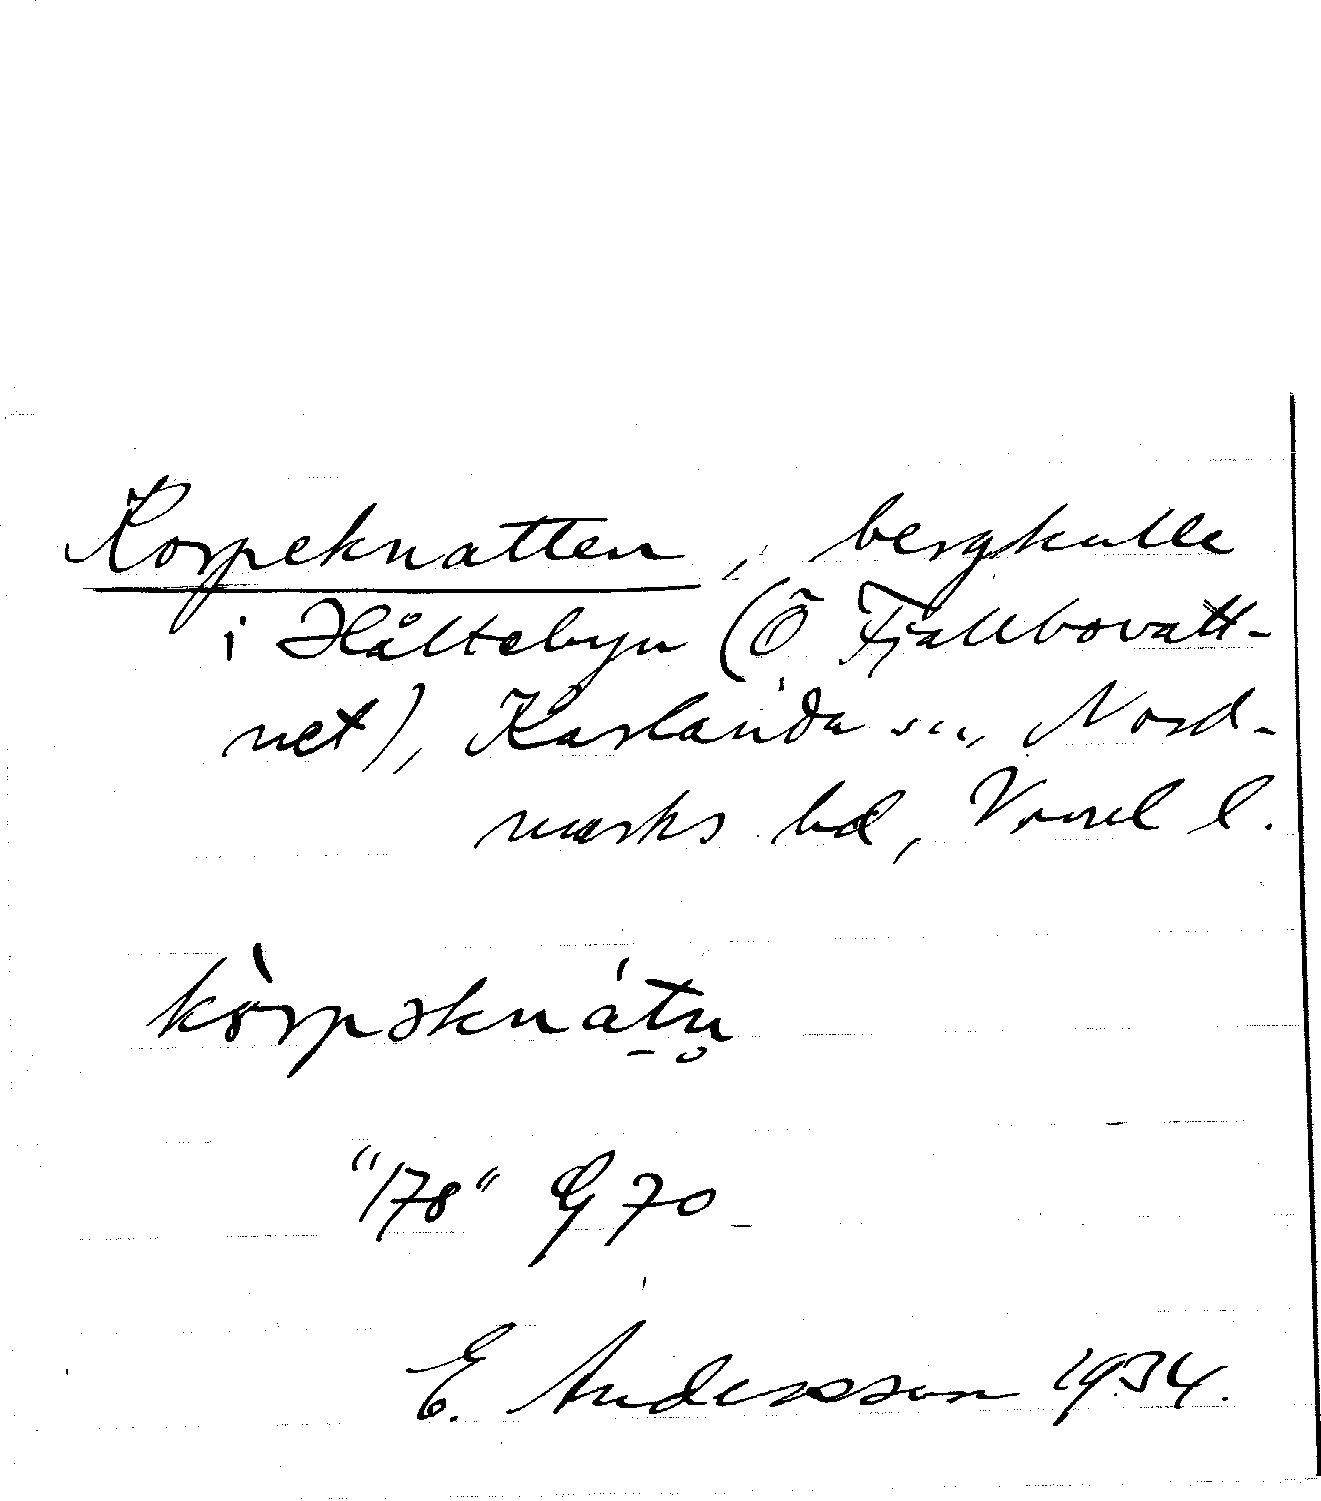 Korpeknatten, bergkulle
i Håltebyn (Ö Fjällbovatt-
net), Karlanda sn, Nord-
marks hd, Värml l.
kòrpəknátn̥
"178" G 70
E. Andersson 1934.